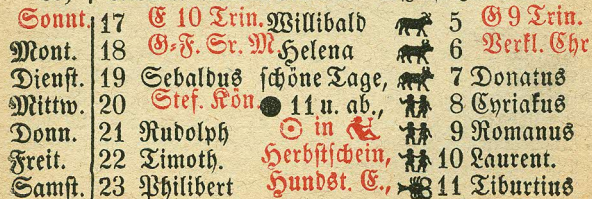 Sonnt. 17 E 10 Trin. Willibald 5 G 9 Trin.
Mont. 18 G-F. Sr. M Helena 6 Verkl. Chr
Dienst. 19 Sebaldus schöne Tage, 7 Donatus
Mittw. 20 Stef. Kön. 11 u. ab., 8 Cyriakus
Donn. 21 Rudolph ☉ in 9 Romanus
Freit. 22 Timoth. Herbstschein, 10 Laurent.
Samst. 23 Philibert Hundst. E., 11 Tiburtius